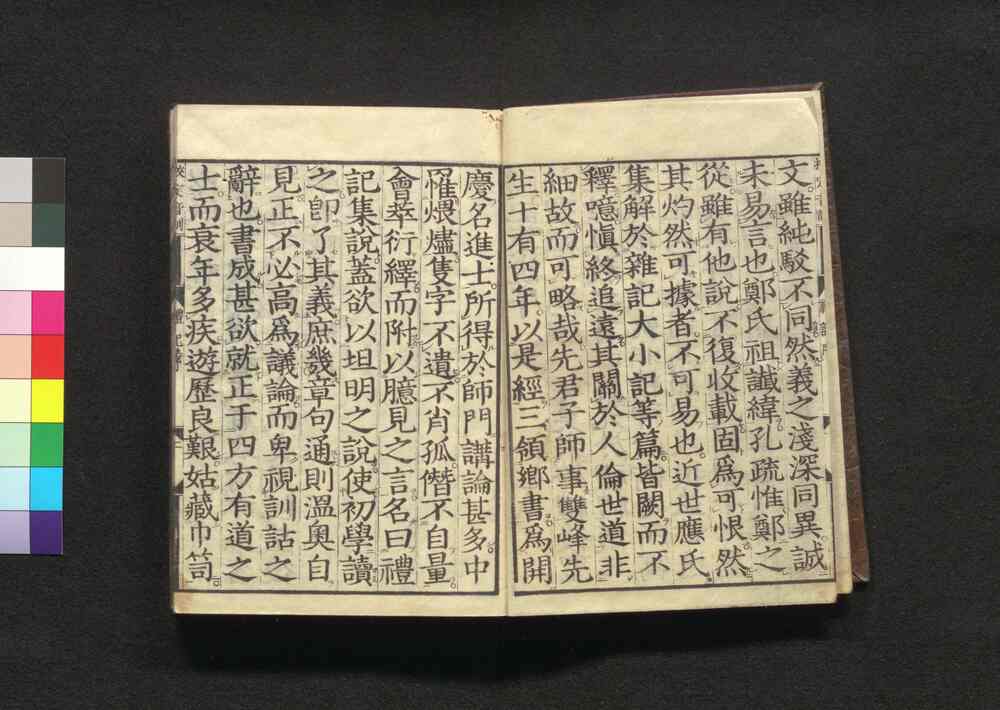 文雖純駁不同然義之淺深同異誠
未易言也鄭氏祖讖緯孔疏惟鄭之
從雖有他說不復收載固爲可恨然
其灼然可據者不可易也近世應氏
集解於雜記大小記等篇皆闕而不
釋噫愼終追遠其關於人倫世道非
細故而可略哉先君子師事雙峰先
生十有四年以是經三領鄕書爲開
慶名進士所得於師門講論甚多中
罹煨燼隻字不遺不肖孤僭不自量
會萃衍繹而附以臆見之言名曰禮
記集說蓋欲以坦明之說使初學讀
之卽了其義庶幾章句通則溫奧自
見正不必高爲議論而卑視訓詁之
辭也書成甚欲就正于四方有道之
士而衰年多疾遊歷良艱姑藏巾笥